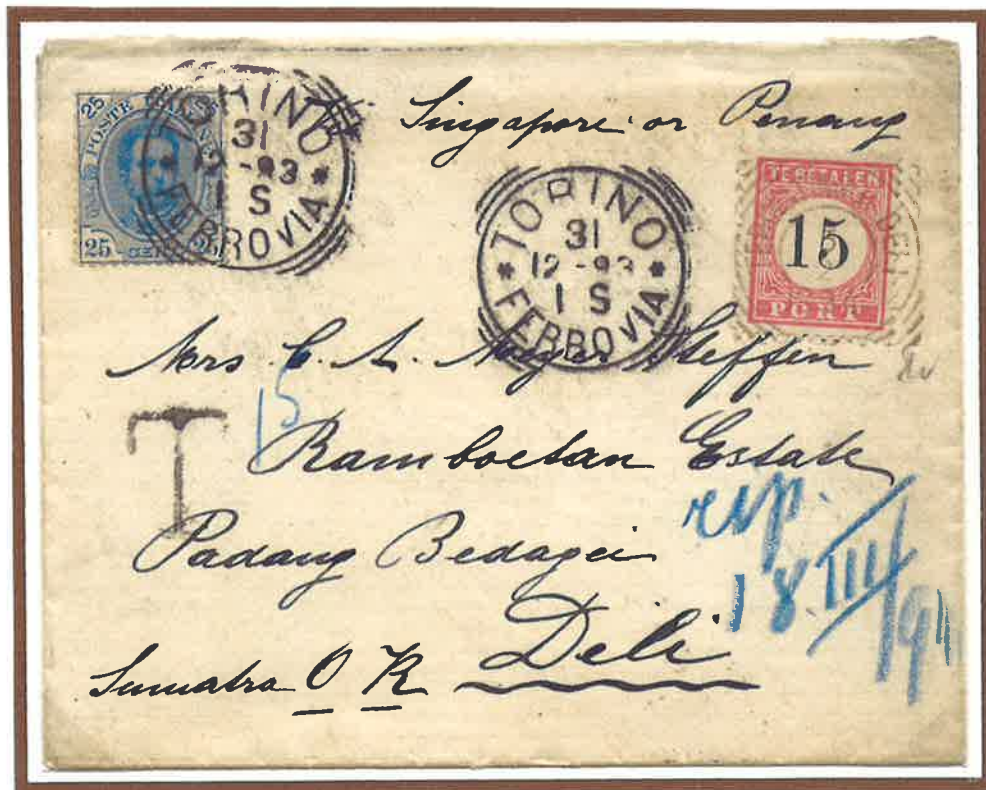 25
POSTE ITALIANE
25 CENT. 25
TORINO
31
12 - 93
1 S
* FERROVIA *
Singapore or Penang
TORINO
31
12 - 93
1 S
* FERROVIA *
TE BETALEN
15
PORT
Mrs C. A. Meyer Steffen
T
15
Ramboetan Estate
Padang Bedagei
Deli
Sumatra O K
rip.
18 III/91